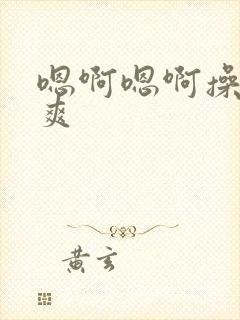 嗯啊嗯啊操
爽
黄玄